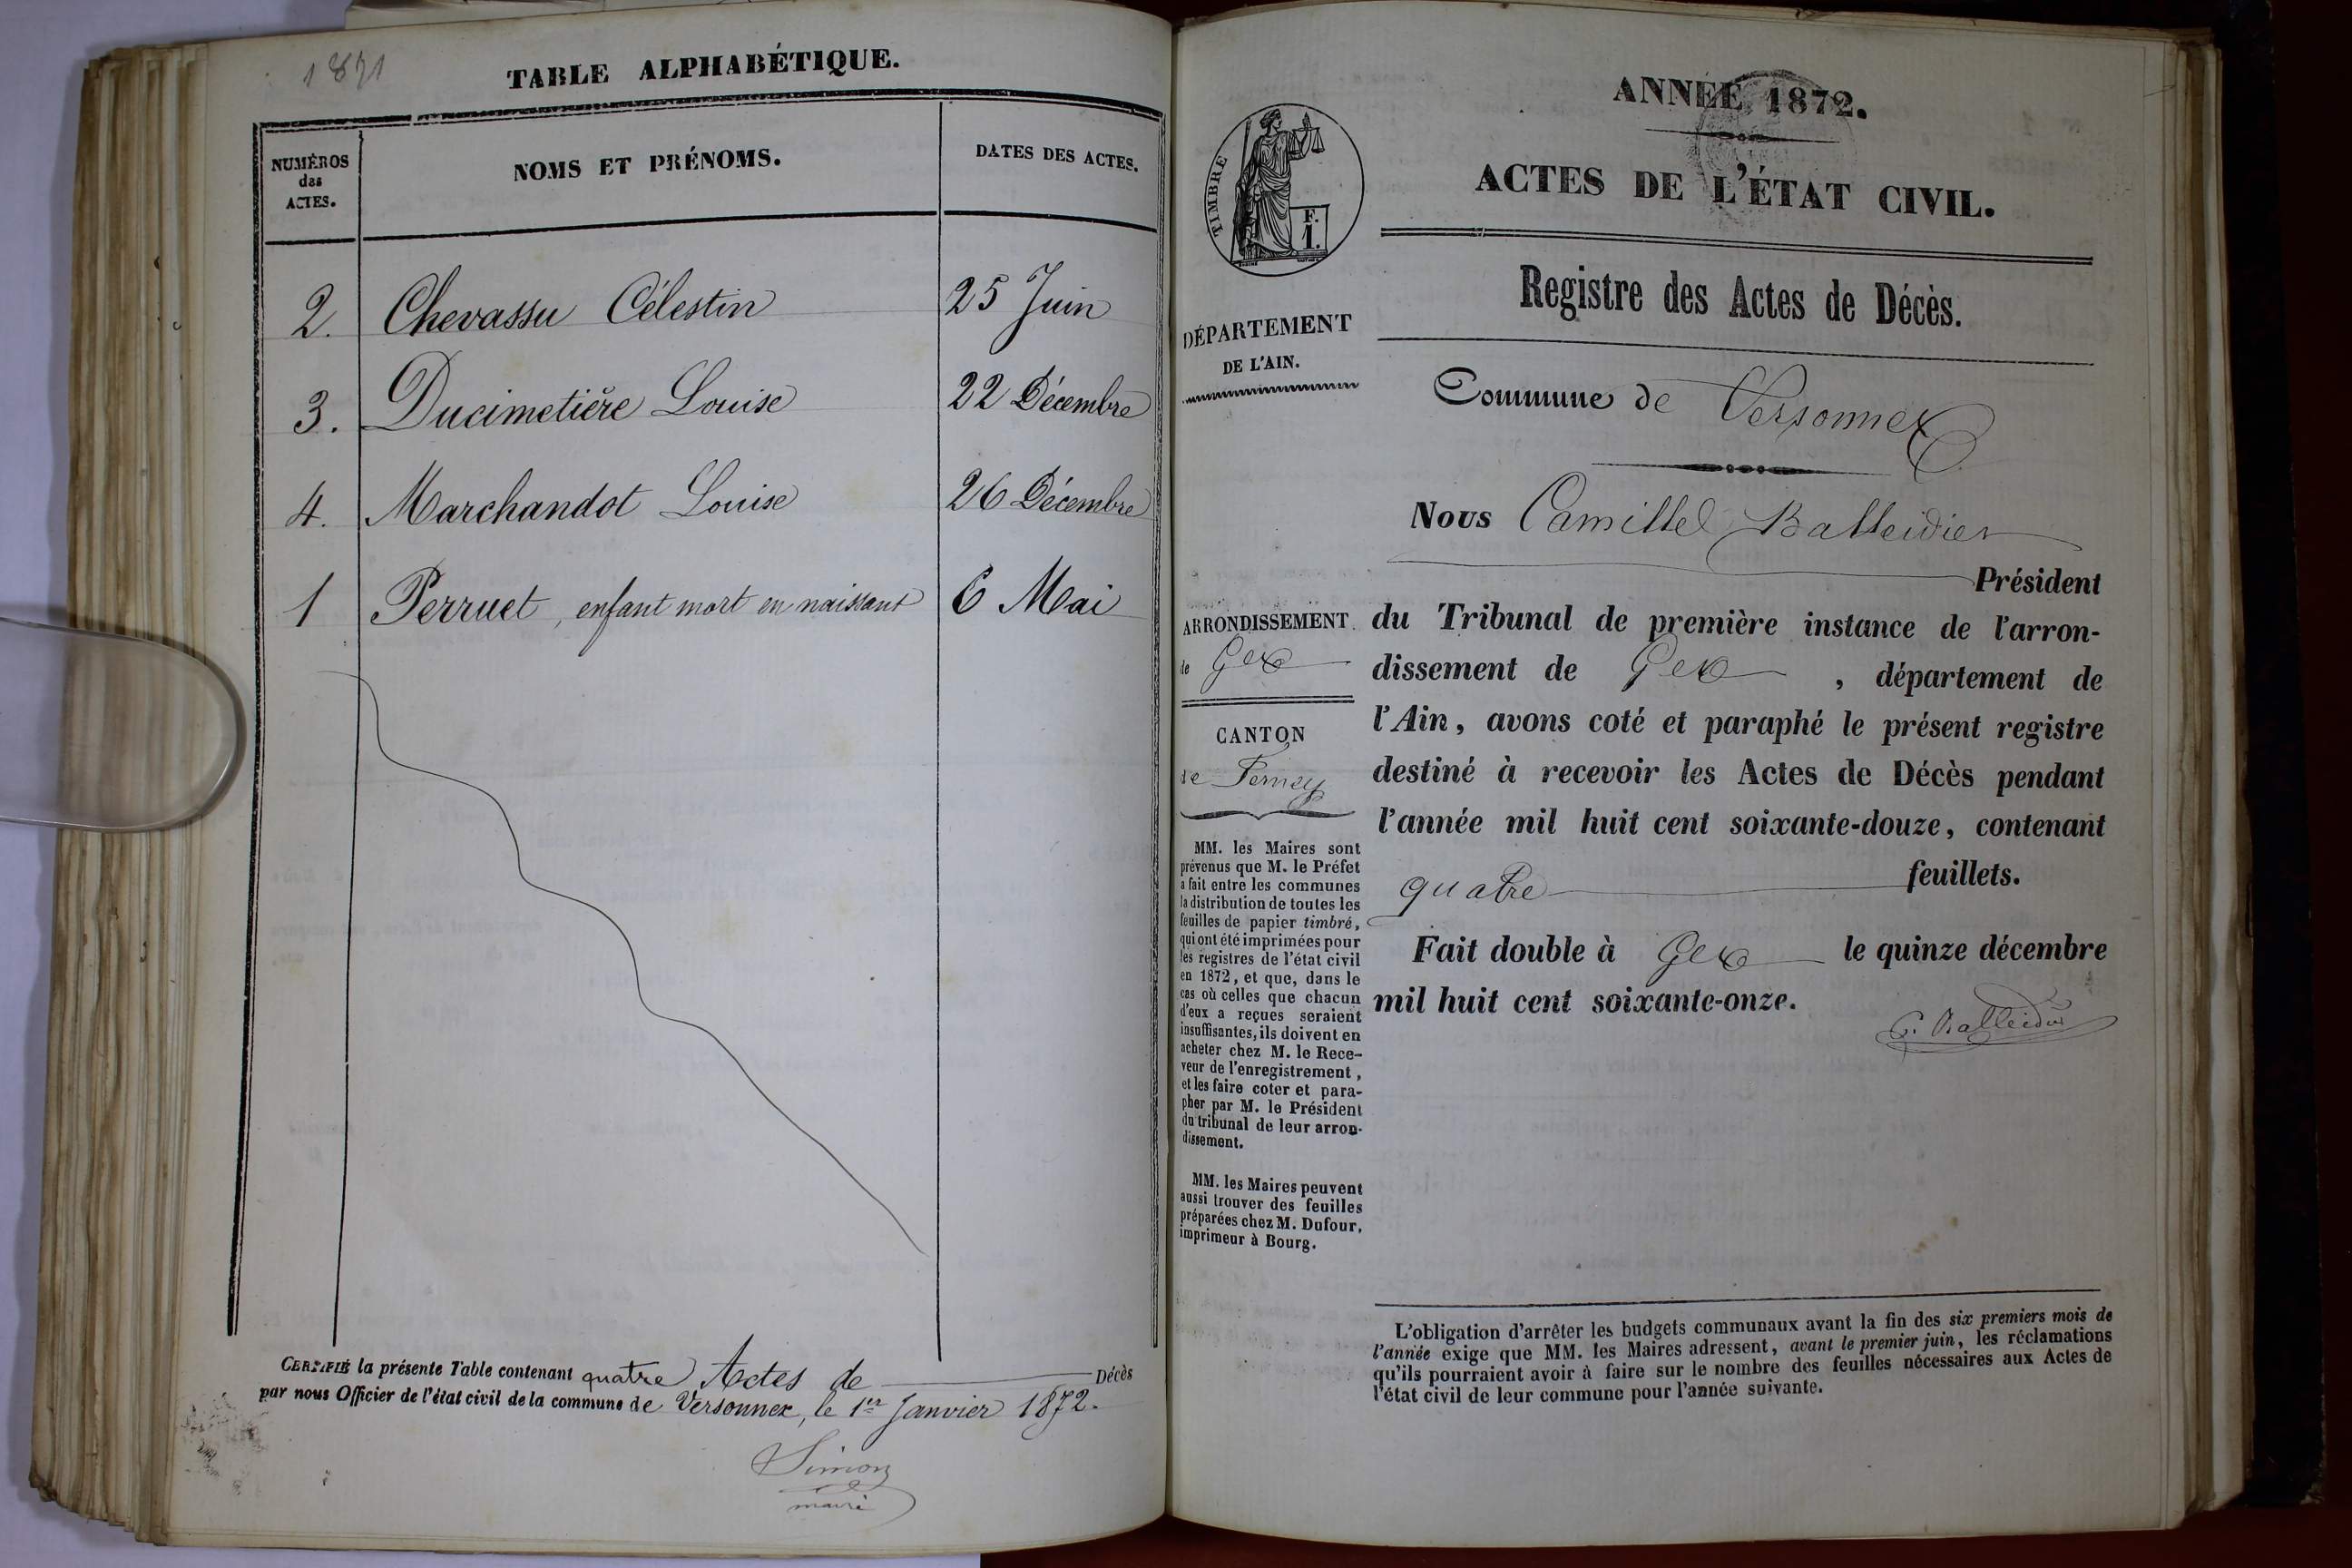 1871
TABLE ALPHABÉTIQUE.
NUMÉROS
des
ACTES.
NOMS ET PRÉNOMS.
DATES DES ACTES.
2. Chevassu Célestin 25 Juin
3. Ducimetière Louise 22 Décembre
4. Marchandot Louise 26 Décembre
1 Perruet, enfant mort en naissant 6 Mai
CERTIFIÉ la présente Table contenant quatre Actes de Décès
par nous Officier de l'état civil de la commune de Versonnex, le 1er Janvier 1872.
Simon
maire
ANNÉE 1872.
ACTES DE L'ÉTAT CIVIL.
Registre des Actes de Décès.
TIMBRE
F.
1.
DÉPARTEMENT
DE L'AIN.
ARRONDISSEMENT
de Gex
CANTON
de Ferney
MM. les Maires sont
prévenus que M. le Préfet
a fait entre les communes
la distribution de toutes les
feuilles de papier timbré,
qui ont été imprimées pour
les registres de l'état civil
en 1872, et que, dans le
cas où celles que chacun
d'eux a reçues seraient
insuffisantes, ils doivent en
acheter chez M. le Rece-
veur de l'enregistrement,
et les faire coter et para-
pher par M. le Président
du tribunal de leur arron-
dissement.
MM. les Maires peuvent
aussi trouver des feuilles
préparées chez M. Dufour,
imprimeur à Bourg.
Commune de Versonnex
Nous Camille Balleidier
Président
du Tribunal de première instance de l'arron-
dissement de Gex, département de
l'Ain, avons coté et paraphé le présent registre
destiné à recevoir les Actes de Décès pendant
l'année mil huit cent soixante-douze, contenant
quatre feuillets.
Fait double à Gex le quinze décembre
mil huit cent soixante-onze.
C. Balleidier
L'obligation d'arrêter les budgets communaux avant la fin des six premiers mois de
l'année exige que MM. les Maires adressent, avant le premier juin, les réclamations
qu'ils pourraient avoir à faire sur le nombre des feuilles nécessaires aux Actes de
l'état civil de leur commune pour l'année suivante.